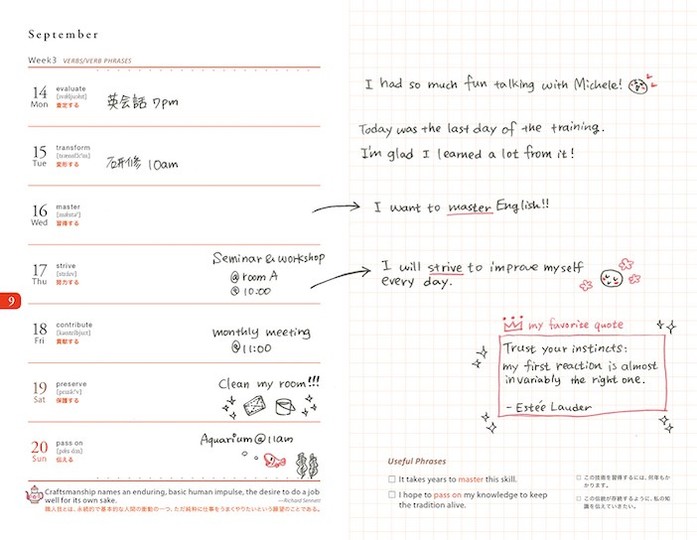 September
Week3 VERBS/VERB PHRASES
14 Mon evaluate
査定する
英会話 7pm
15 Tue transform
変形する
研修 10am
16 Wed master
習得する
17 Thu strive
努力する
Seminar & workshop
@room A
@10:00
9
18 Fri contribute
貢献する
monthly meeting
@11:00
19 Sat preserve
保護する
Clean my room!!!
20 Sun pass on
伝える
Aquarium@11am
Craftsmanship names an enduring, basic human impulse, the desire to do a job
well for its own sake.
—Richard Sennett
職人技とは、永続的で基本的な人間の衝動の一つ、ただ純粋に仕事をうまくやりたいという願望のことである。
I had so much fun talking with Michele!
Today was the last day of the training.
I'm glad I learned a lot from it!
I want to master English!!
I will strive to improve myself
every day.
my favorite quote
Trust your instincts:
my first reaction is almost
invariably the right one.
- Estée Lauder
Useful Phrases
It takes years to master this skill.
I hope to pass on my knowledge to keep
the tradition alive.
この技術を習得するには、何年もか
かります。
この伝統が存続するように、私の知
識を伝えていきたい。